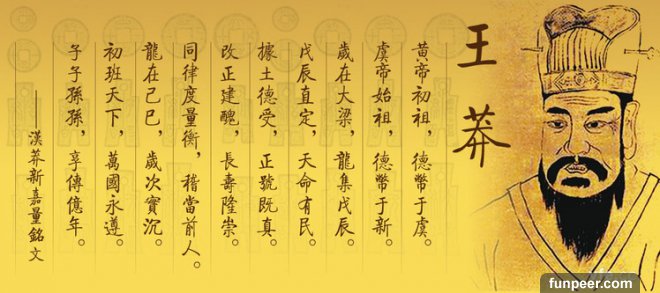 王莽
黄帝初祖，德幣于虞。
虞帝始祖，德幣于新。
歲在大梁，龍集戊辰。
戊辰直定，天命有民。
據土德受，正號既真。
改正建醜，長壽隆崇。
同律度量衡，稽當前人。
龍在己巳，歲次實沉。
初班天下，萬國永遵。
子子孫孫，享傳億年。
——漢莽新嘉量銘文
funpeer.com